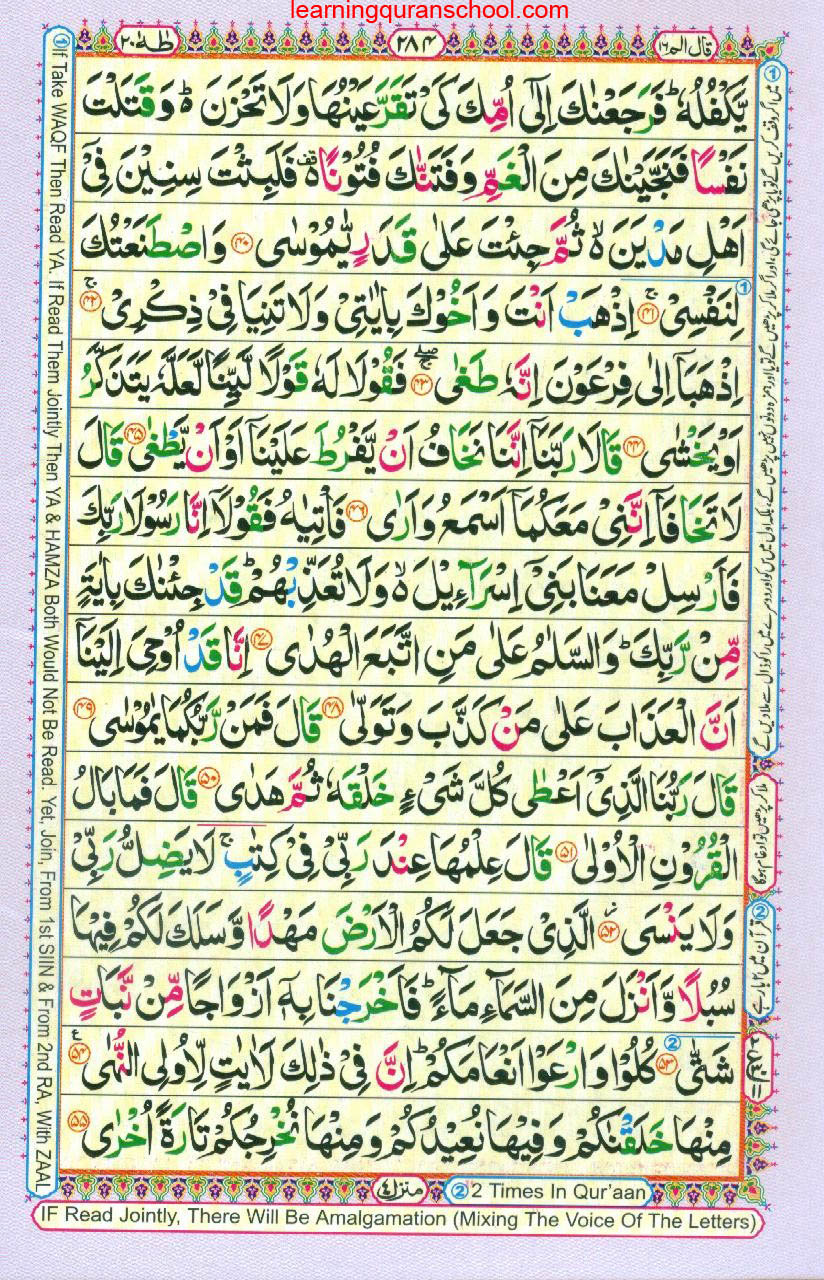 learningquranschool.com
قال الم ١٦
٢٨٤
طٰهٰ ٢٠
یَّكْفُلُهٗ ؕ فَرَجَعْنٰكَ اِلٰۤی اُمِّكَ كَیْ تَقَرَّ عَیْنُهَا وَلَا تَحْزَنَ ۬ؕ وَقَتَلْتَ
نَفْسًا فَنَجَّیْنٰكَ مِنَ الْغَمِّ وَفَتَنّٰكَ فُتُوْنًا ۬۫ فَلَبِثْتَ سِنِیْنَ فِیْۤ
اَهْلِ مَدْیَنَ ۙ۬ ثُمَّ جِئْتَ عَلٰی قَدَرٍ یّٰمُوْسٰی ﴿۴۰﴾ وَاصْطَنَعْتُكَ
لِنَفْسِیْ ۚ﴿۴۱﴾ اِذْهَبْ اَنْتَ وَاَخُوْكَ بِاٰیٰتِیْ وَلَا تَنِیَا فِیْ ذِكْرِیْ ۚ﴿۴۲﴾
اِذْهَبَاۤ اِلٰی فِرْعَوْنَ اِنَّهٗ طَغٰی ۚۖ﴿۴۳﴾ فَقُوْلَا لَهٗ قَوْلًا لَّیِّنًا لَّعَلَّهٗ یَتَذَكَّرُ
اَوْ یَخْشٰی ﴿۴۴﴾ قَالَا رَبَّنَاۤ اِنَّنَا نَخَافُ اَنْ یَّفْرُطَ عَلَیْنَاۤ اَوْ اَنْ یَّطْغٰی ﴿۴۵﴾ قَالَ
لَا تَخَافَاۤ اِنَّنِیْ مَعَكُمَاۤ اَسْمَعُ وَاَرٰی ﴿۴۶﴾ فَاْتِیٰهُ فَقُوْلَاۤ اِنَّا رَسُوْلَا رَبِّكَ
فَاَرْسِلْ مَعَنَا بَنِیْۤ اِسْرَآءِیْلَ ۙ۬ وَلَا تُعَذِّبْهُمْ ؕ قَدْ جِئْنٰكَ بِاٰیَةٍ
مِّنْ رَّبِّكَ ؕ وَالسَّلٰمُ عَلٰی مَنِ اتَّبَعَ الْهُدٰی ﴿۴۷﴾ اِنَّا قَدْ اُوْحِیَ اِلَیْنَاۤ
اَنَّ الْعَذَابَ عَلٰی مَنْ كَذَّبَ وَتَوَلّٰی ﴿۴۸﴾ قَالَ فَمَنْ رَّبُّكُمَا یٰمُوْسٰی ﴿۴۹﴾
قَالَ رَبُّنَا الَّذِیْۤ اَعْطٰی كُلَّ شَیْءٍ خَلْقَهٗ ثُمَّ هَدٰی ﴿۵۰﴾ قَالَ فَمَا بَالُ
الْقُرُوْنِ الْاُوْلٰی ﴿۵۱﴾ قَالَ عِلْمُهَا عِنْدَ رَبِّیْ فِیْ كِتٰبٍ ۚ لَا یَضِلُّ رَبِّیْ
وَلَا یَنْسَی ﴿۵۲﴾ الَّذِیْ جَعَلَ لَكُمُ الْاَرْضَ مَهْدًا وَّسَلَكَ لَكُمْ فِیْهَا
سُبُلًا وَّاَنْزَلَ مِنَ السَّمَآءِ مَآءً ؕ فَاَخْرَجْنَا بِهٖۤ اَزْوَاجًا مِّنْ نَّبَاتٍ
شَتّٰی ﴿۵۳﴾ كُلُوْا وَارْعَوْا اَنْعَامَكُمْ ؕ اِنَّ فِیْ ذٰلِكَ لَاٰیٰتٍ لِّاُولِی النُّهٰی ﴿۵۴﴾
مِنْهَا خَلَقْنٰكُمْ وَفِیْهَا نُعِیْدُكُمْ وَمِنْهَا نُخْرِجُكُمْ تَارَةً اُخْرٰی ﴿۵۵﴾
① If Take WAQF Then Read YA. If Read Them Jointly Then YA & HAMZA Both Would Not Be Read. Yet, Join, From 1st SIIN & From 2nd RA, With ZAAL
ملا کر پڑھیں تو ادغام ہوگا
② قرآن میں ۲ بار ہے
منزل ٤
② 2 Times In Qur'aan
IF Read Jointly, There Will Be Amalgamation (Mixing The Voice Of The Letters)